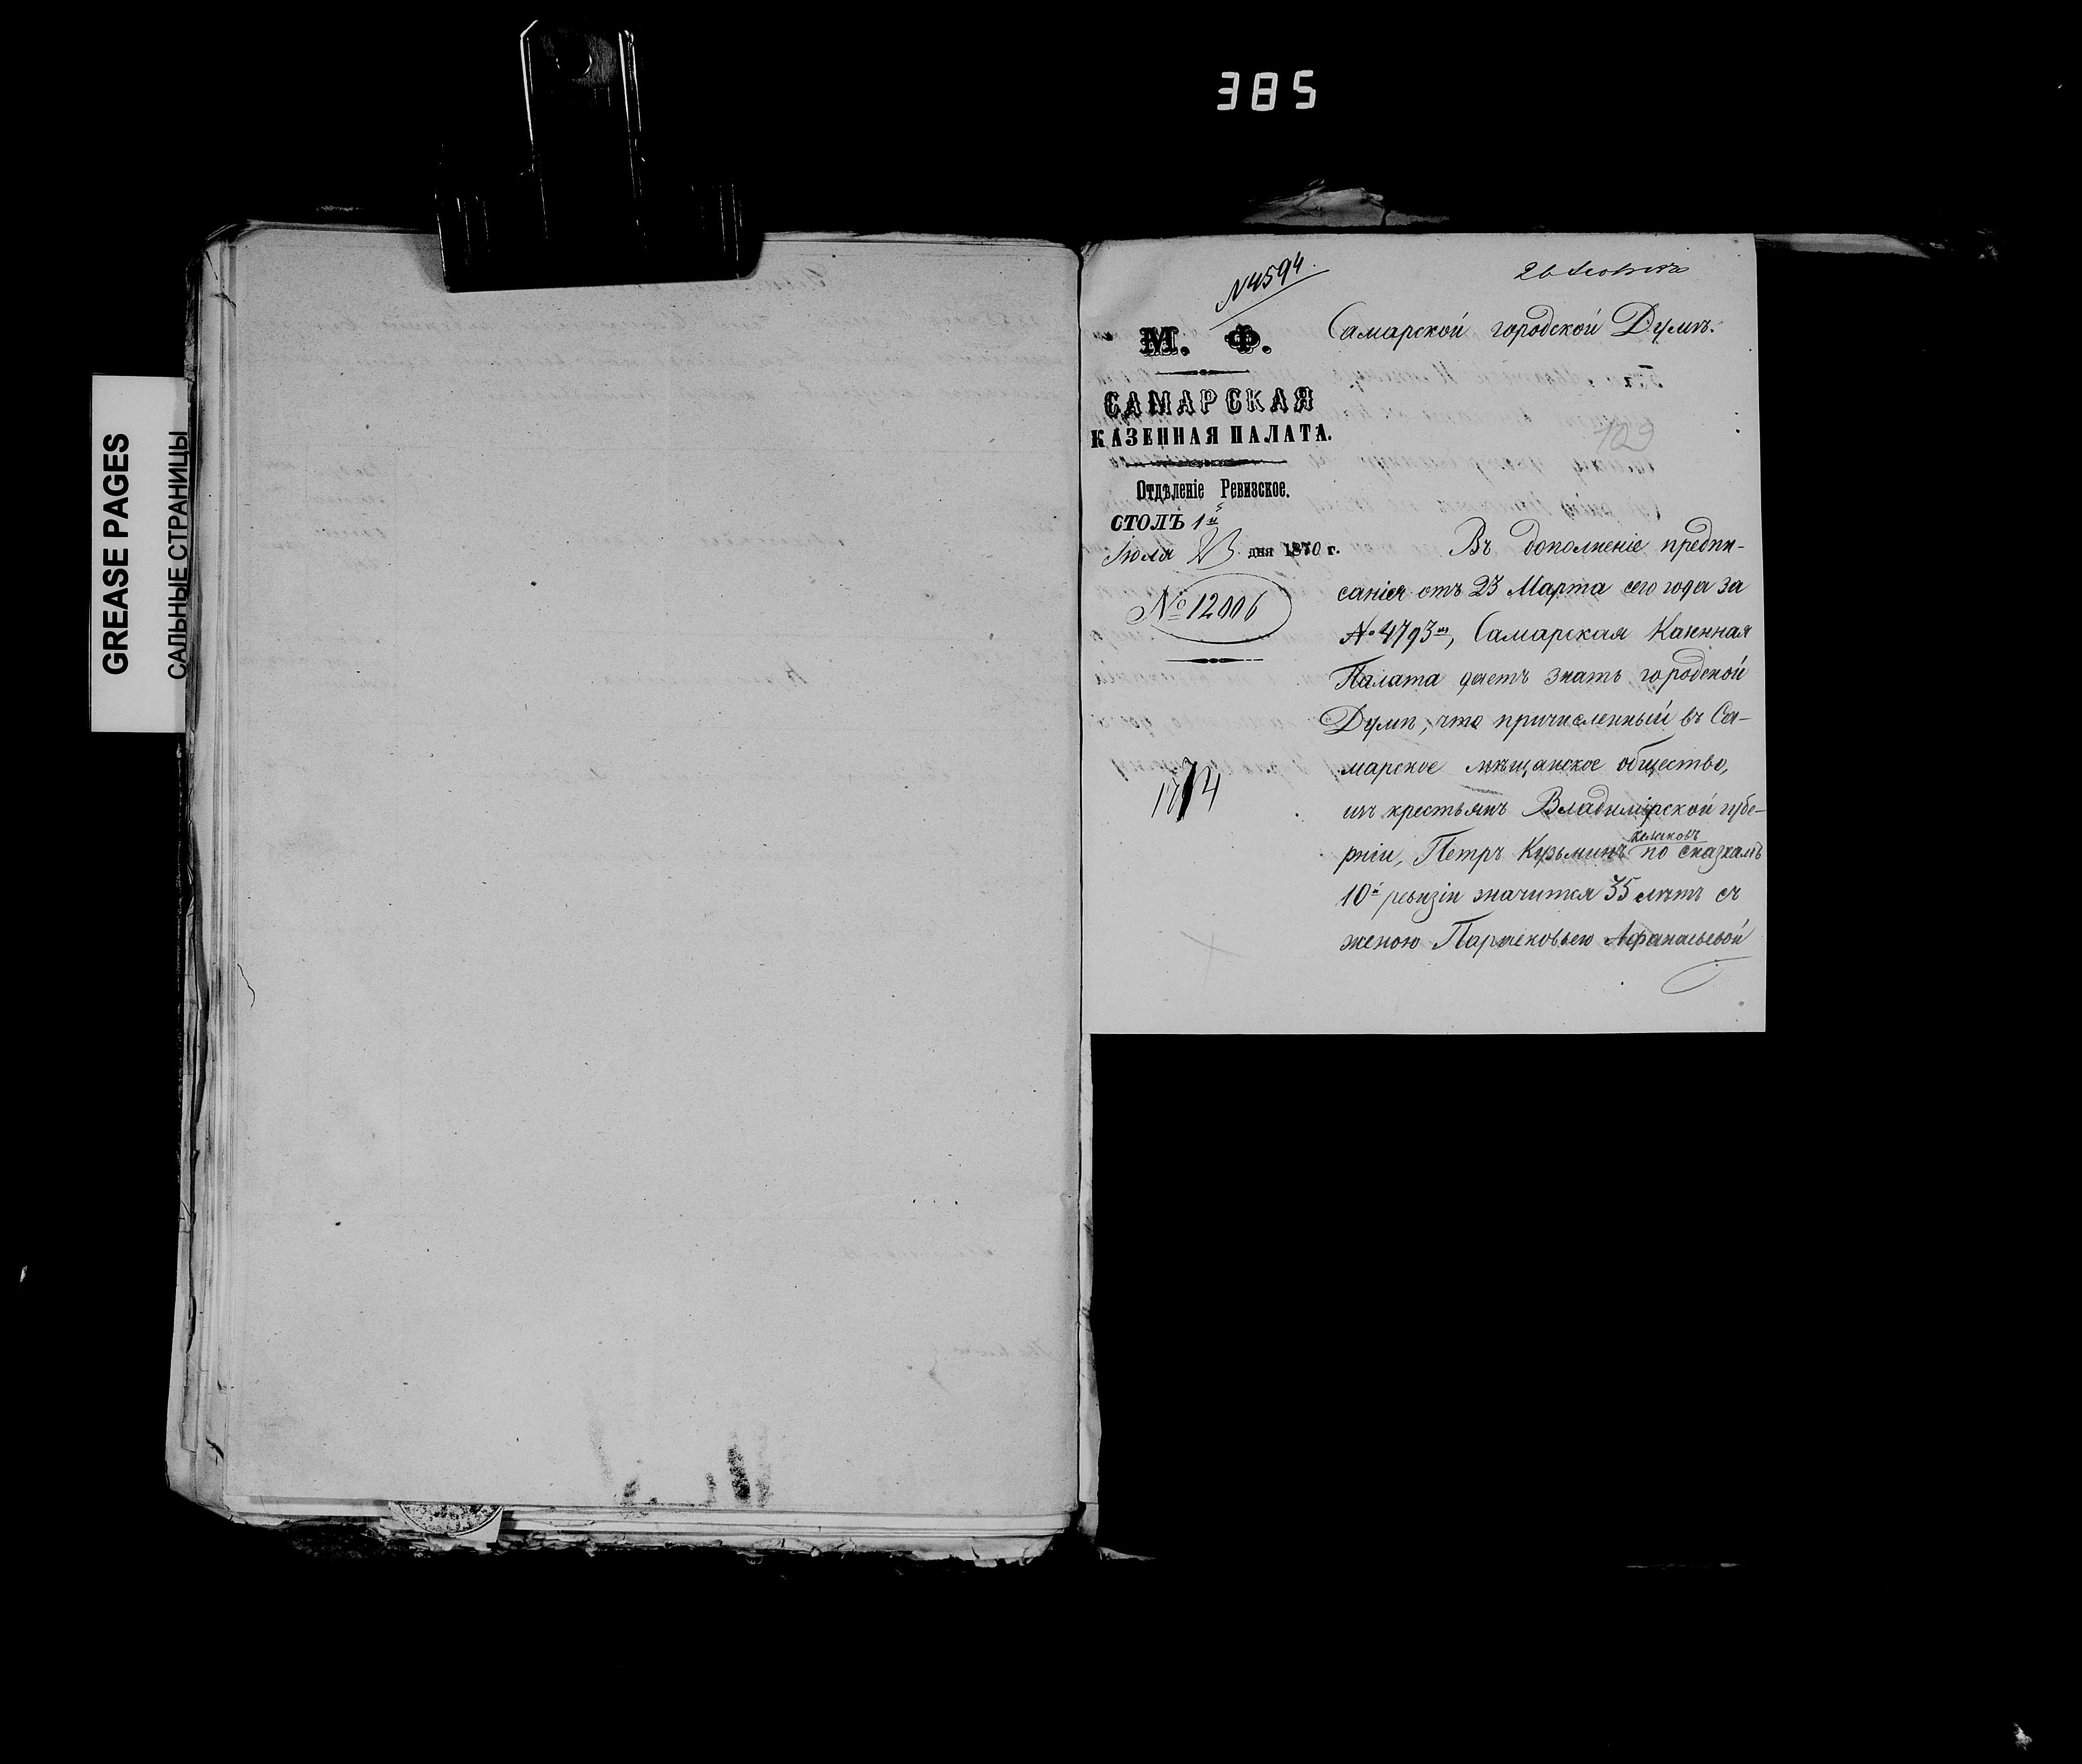 385
GREASE PAGES
САЛЬНЫЕ СТРАНИЦЫ
№4594
М. Ф.
САМАРСКАЯ
КАЗЕННАЯ ПАЛАТА.
Отдѣленіе Ревизское.
СТОЛЪ 1й
Іюля 23 дня 1870 г.
№ 12006
Самарской городской Думѣ.
129
Въ дополненіе предпи-
санія отъ 23 Марта сего года за
№ 4793мъ, Самарская Казенная
Палата даетъ знать городской
Думѣ, что причисленный въ Са-
марское мѣщанское общество,
изъ крестьянъ Владимірской губе-
рніи, Петръ Кузьминъ по сказкамъ
10й ревизіи значится 35 лѣтъ съ
женою Парасковьею Афанасьевой